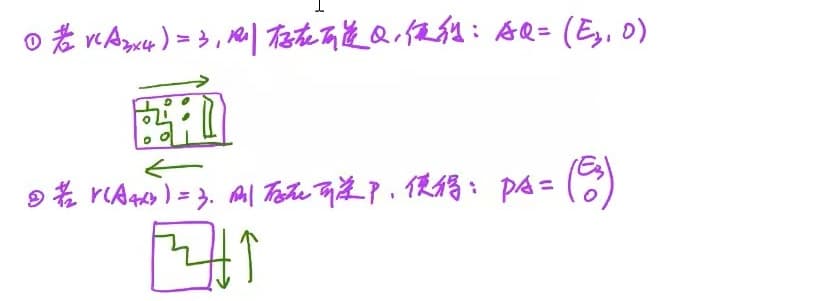 ① 若 r(A₃ₓ₄) = 3, 则 存在可逆Q, 使得: AQ = (E₃, 0)
② 若 r(A₄ₓ₃) = 3. 则 存在可逆P, 使得: PA = (E₃ 0)